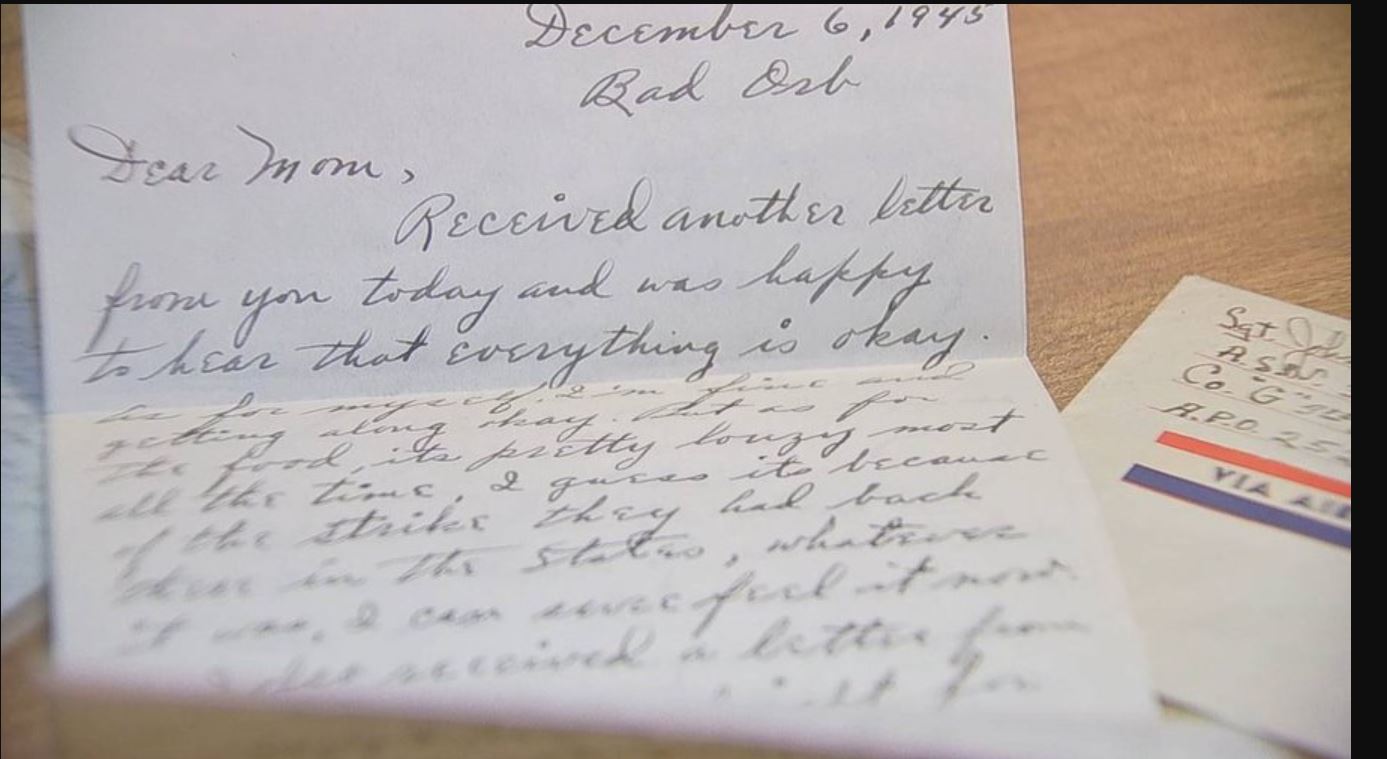 December 6, 1945
Bad Orb
Dear Mom,
Received another letter
from you today and was happy
to hear that everything is okay.
As for myself, I'm fine and
getting along okay. But as for
the food, its pretty louzy most
all the time, I guess its because
of the strike they had back
there in the States, whatever
it was, I can sure feel it now.
I also received a letter from
for
Sgt
A.S.N.
Co. "G"
A.P.O. 252
VIA AIR